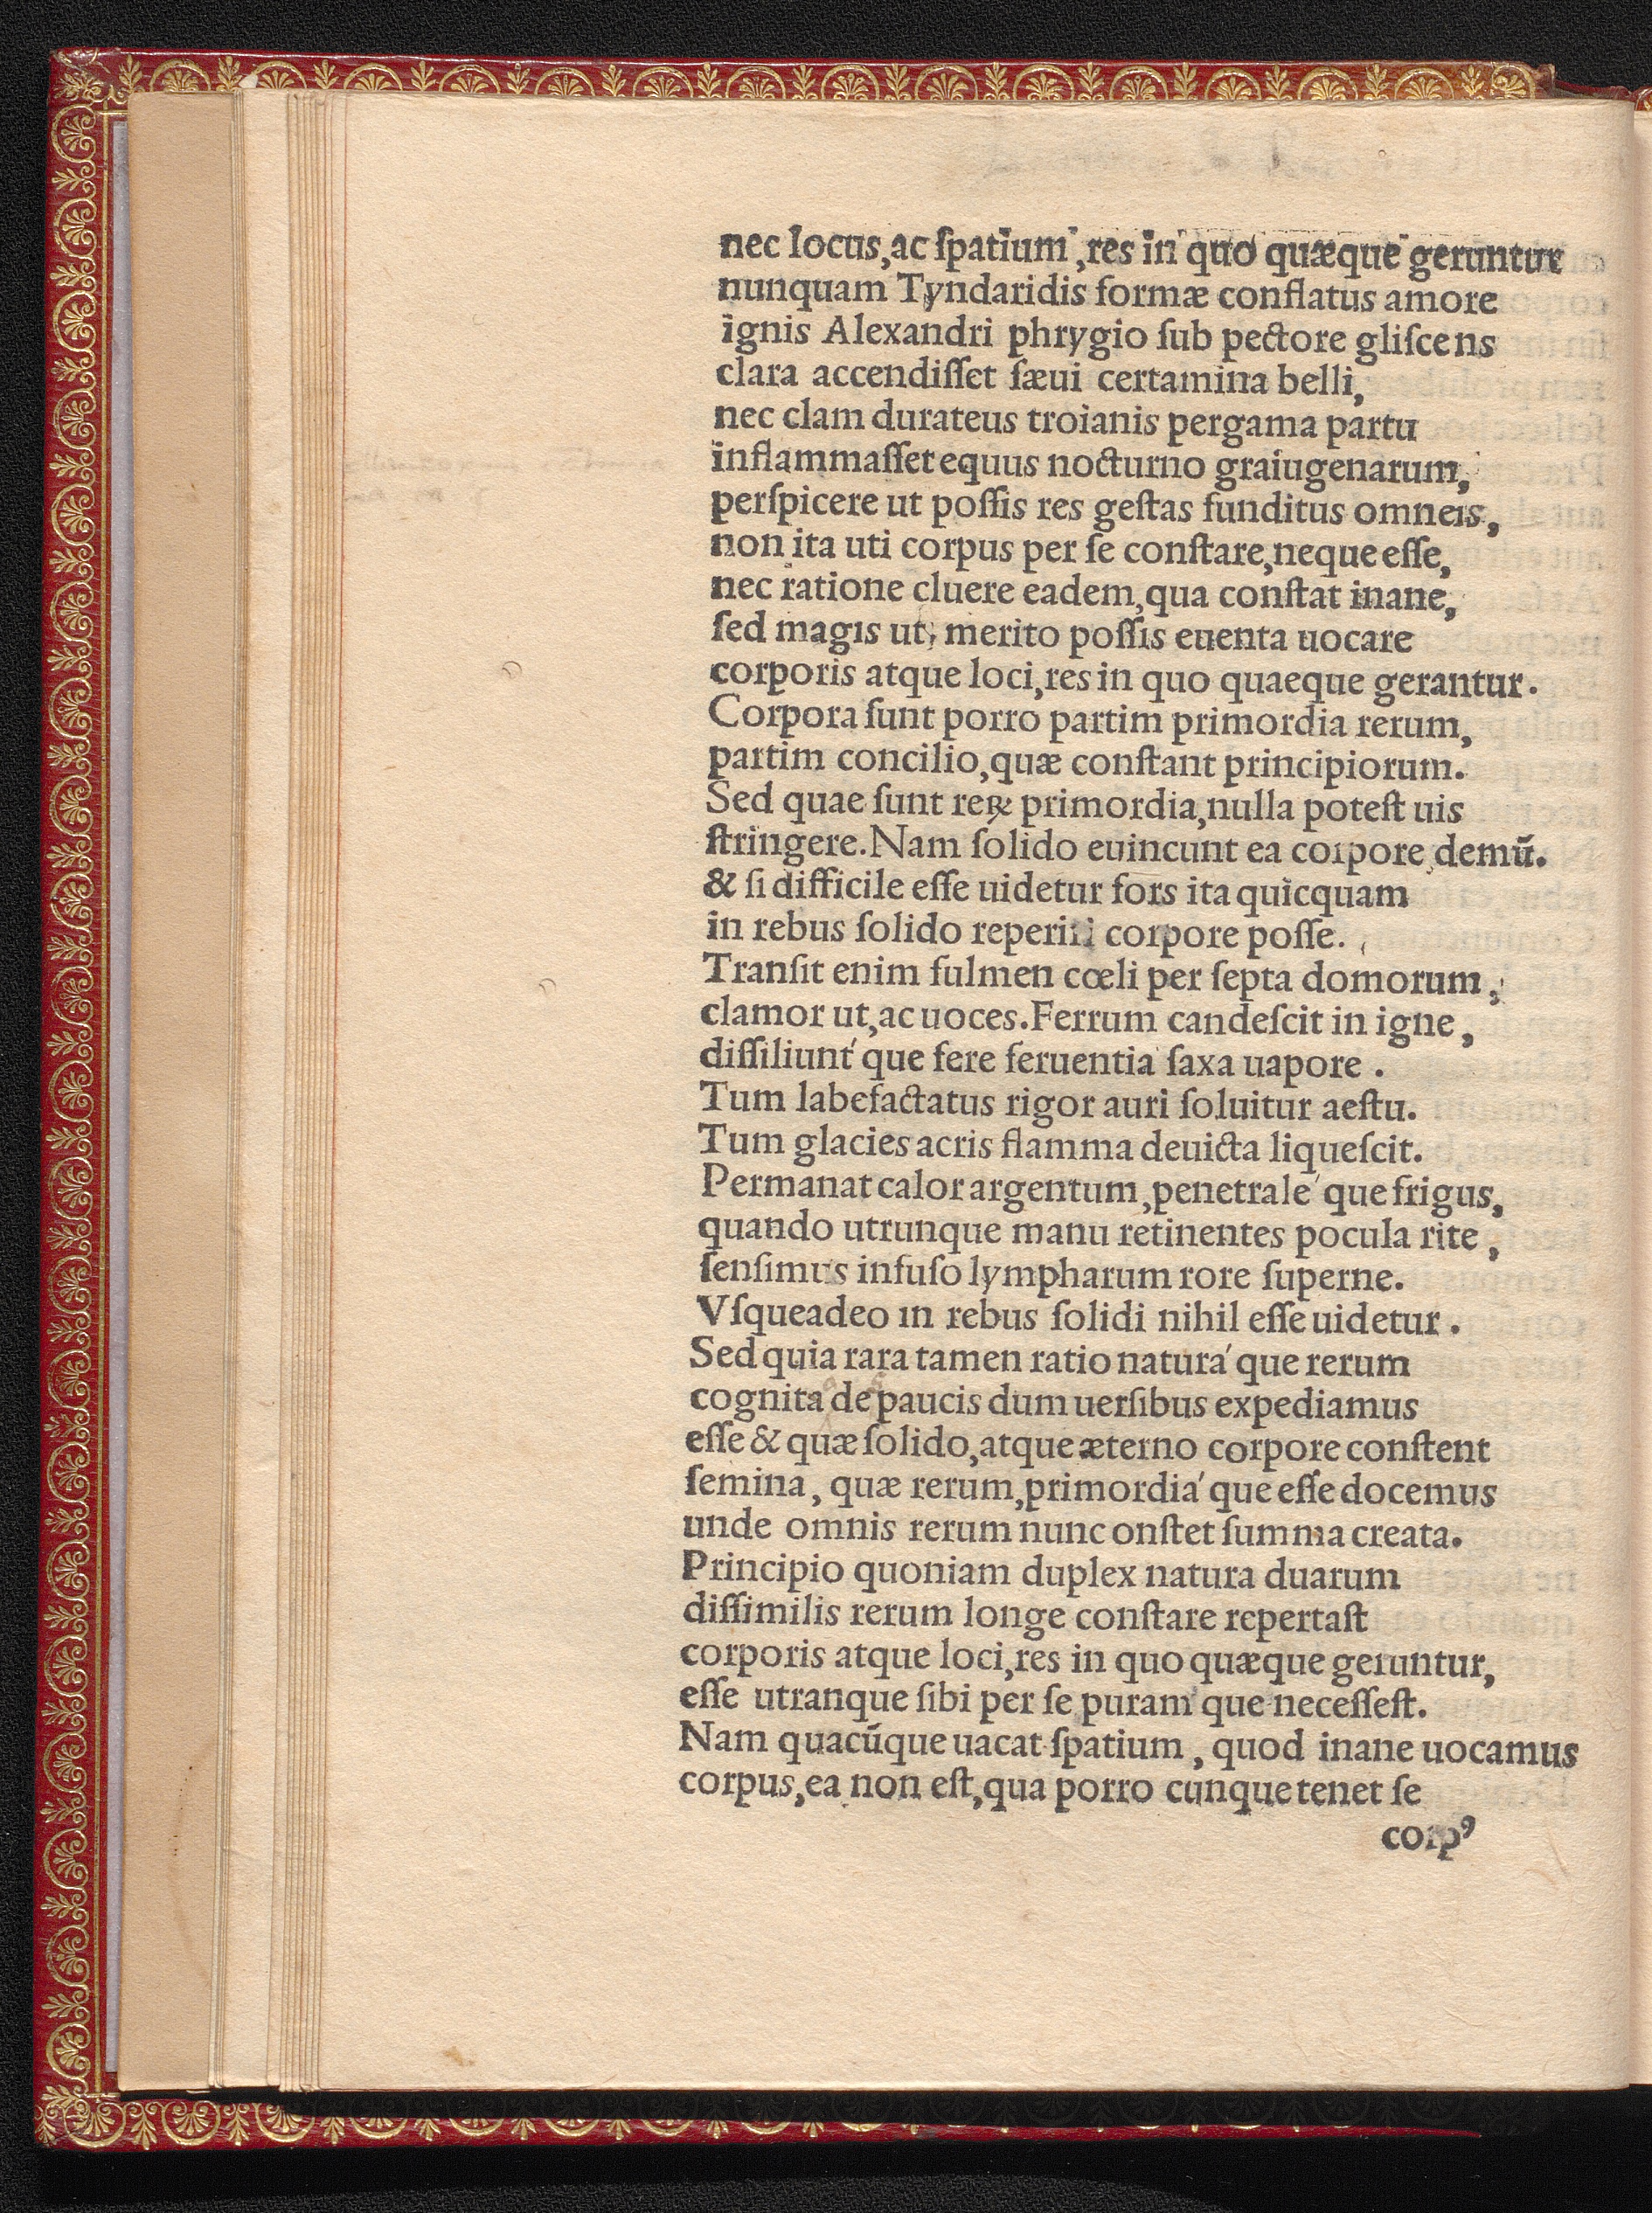 nec locus,ac ſpatium ,res in quo quæque geruntur
nunquam Tyndaridis formæ conflatus amore
ignis Alexandri phrygio ſub pectore gliſcens
clara accendiſſet ſæui certamina belli,
nec clam durateus troianis pergama partu
inflammaſſet equus nocturno graiugenarum,
perſpicere ut poſſis res geſtas funditus omneis,
non ita uti corpus per ſe conſtare,neque eſſe,
nec ratione cluere eadem,qua conſtat inane,
ſed magis ut, merito poſſis euenta uocare
corporis atque loci,res in quo quaeque gerantur.
Corpora ſunt porro partim primordia rerum,
partim concilio,quæ conſtant principiorum.
Sed quae ſunt reꝝ primordia,nulla poteſt uis
ſtringere.Nam ſolido euincunt ea corpore demū.
& ſi difficile eſſe uidetur fors ita quicquam
in rebus ſolido reperiri corpore poſſe.
Tranſit enim fulmen cœli per ſepta domorum,
clamor ut,ac uoces.Ferrum candeſcit in igne,
diſſiliunt' que fere feruentia ſaxa uapore .
Tum labefactatus rigor auri ſoluitur aeſtu.
Tum glacies acris flamma deuicta liqueſcit.
Permanat calor argentum,penetrale' que frigus,
quando utrunque manu retinentes pocula rite ,
ſenſimus infuſo lympharum rore ſuperne.
Vſqueadeo in rebus ſolidi nihil eſſe uidetur .
Sed quia rara tamen ratio natura' que rerum
cognita de paucis dum uerſibus expediamus
eſſe & quæ ſolido,atque æterno corpore conſtent
ſemina, quæ rerum,primordia' que eſſe docemus
unde omnis rerum nunc onſtet ſumma creata.
Principio quoniam duplex natura duarum
diſſimilis rerum longe conſtare repertaſt
corporis atque loci,res in quo quæque geruntur,
eſſe utranque ſibi per ſe puram' que neceſſeſt.
Nam quacūque uacat ſpatium , quod inane uocamus
corpus,ea non eſt,qua porro cunque tenet ſe
corpꝰ